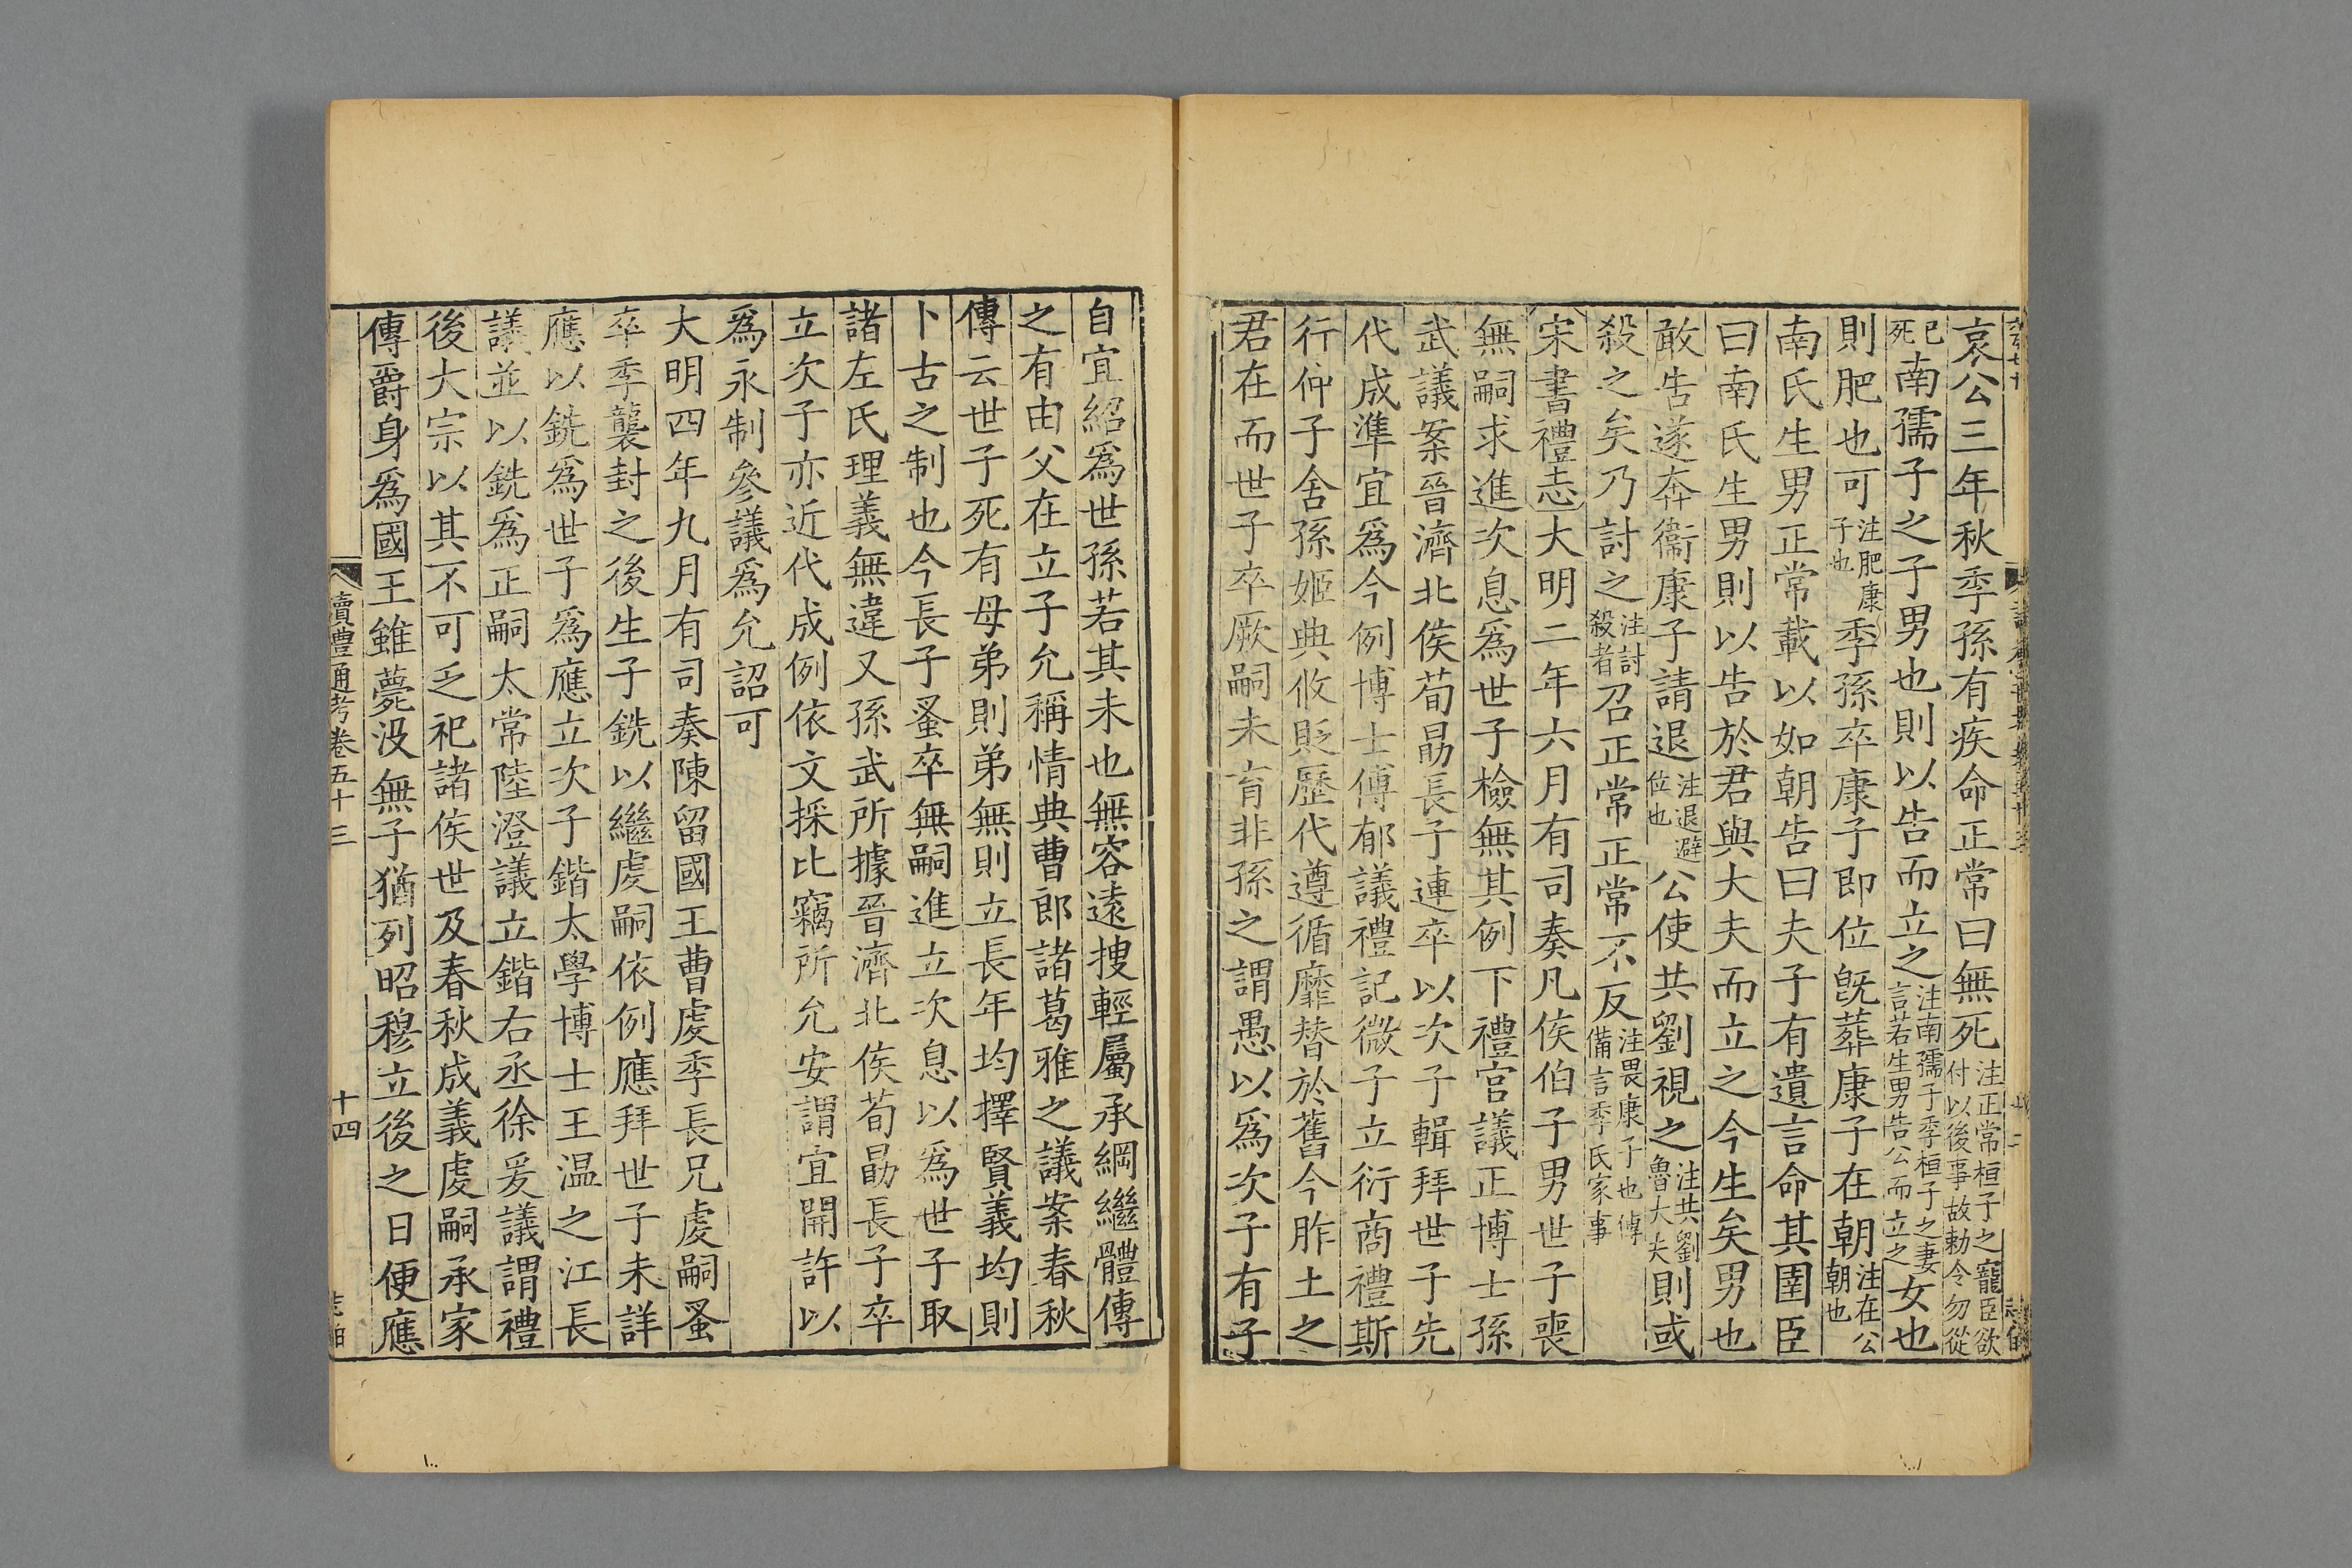 哀公三年秋季孫有疾命正常曰無死注正常桓子之寵臣欲付以後事故勅令勿從
己死南孺子之子男也則以告而立之注南孺子季桓子之妻言若生男告公而立之女也
則肥也可注肥康子也季孫卒康子即位既葬康子在朝注在公朝也
南氏生男正常載以如朝告曰夫子有遺言命其圉臣
曰南氏生男則以告於君與大夫而立之今生矣男也
敢告遂奔衞康子請退注退避位也公使共劉視之注共劉魯大夫則或
殺之矣乃討之注討殺者召正常正常不反注畏康子也傳備言季氏家事
宋書禮志大明二年六月有司奏凡侯伯子男世子喪
無嗣求進次息爲世子檢無其例下禮官議正博士孫
武議案晉濟北侯荀勗長子連卒以次子輯拜世子先
代成準宜爲今例博士傅郁議禮記微子立衍商禮斯
行仲子舍孫姬典攸貶歷代遵循靡替於舊今胙土之
君在而世子卒厥嗣未育非孫之謂愚以爲次子有子
自宜紹爲世孫若其未也無容遠搜輕屬承綱繼體傳
之有由父在立子允稱情典曹郎諸葛雅之議案春秋
傳云世子死有母弟則弟無則立長年均擇賢義均則
卜古之制也今長子蚤卒無嗣進立次息以爲世子取
諸左氏理義無違又孫武所據晉濟北侯荀勗長子卒
立次子亦近代成例依文採比竊所允安謂宜開許以
爲永制參議爲允詔可
大明四年九月有司奏陳留國王曹虔季長兄虔嗣蚤
卒季襲封之後生子銑以繼虔嗣依例應拜世子未詳
應以銑爲世子爲應立次子鍇太學博士王温之江長
議並以銑爲正嗣太常陸澄議立鍇右丞徐爰議謂禮
後大宗以其不可乏祀諸侯世及春秋成義虔嗣承家
傳爵身爲國王雖薨沒無子猶列昭穆立後之日便應
讀禮通考卷五十三
十四